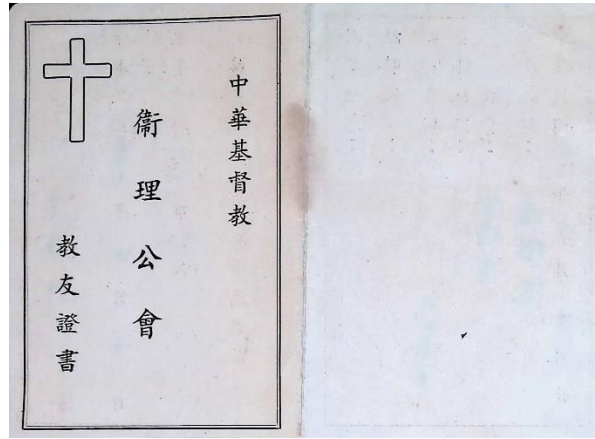 中華基督教
衞理公會
教友證書